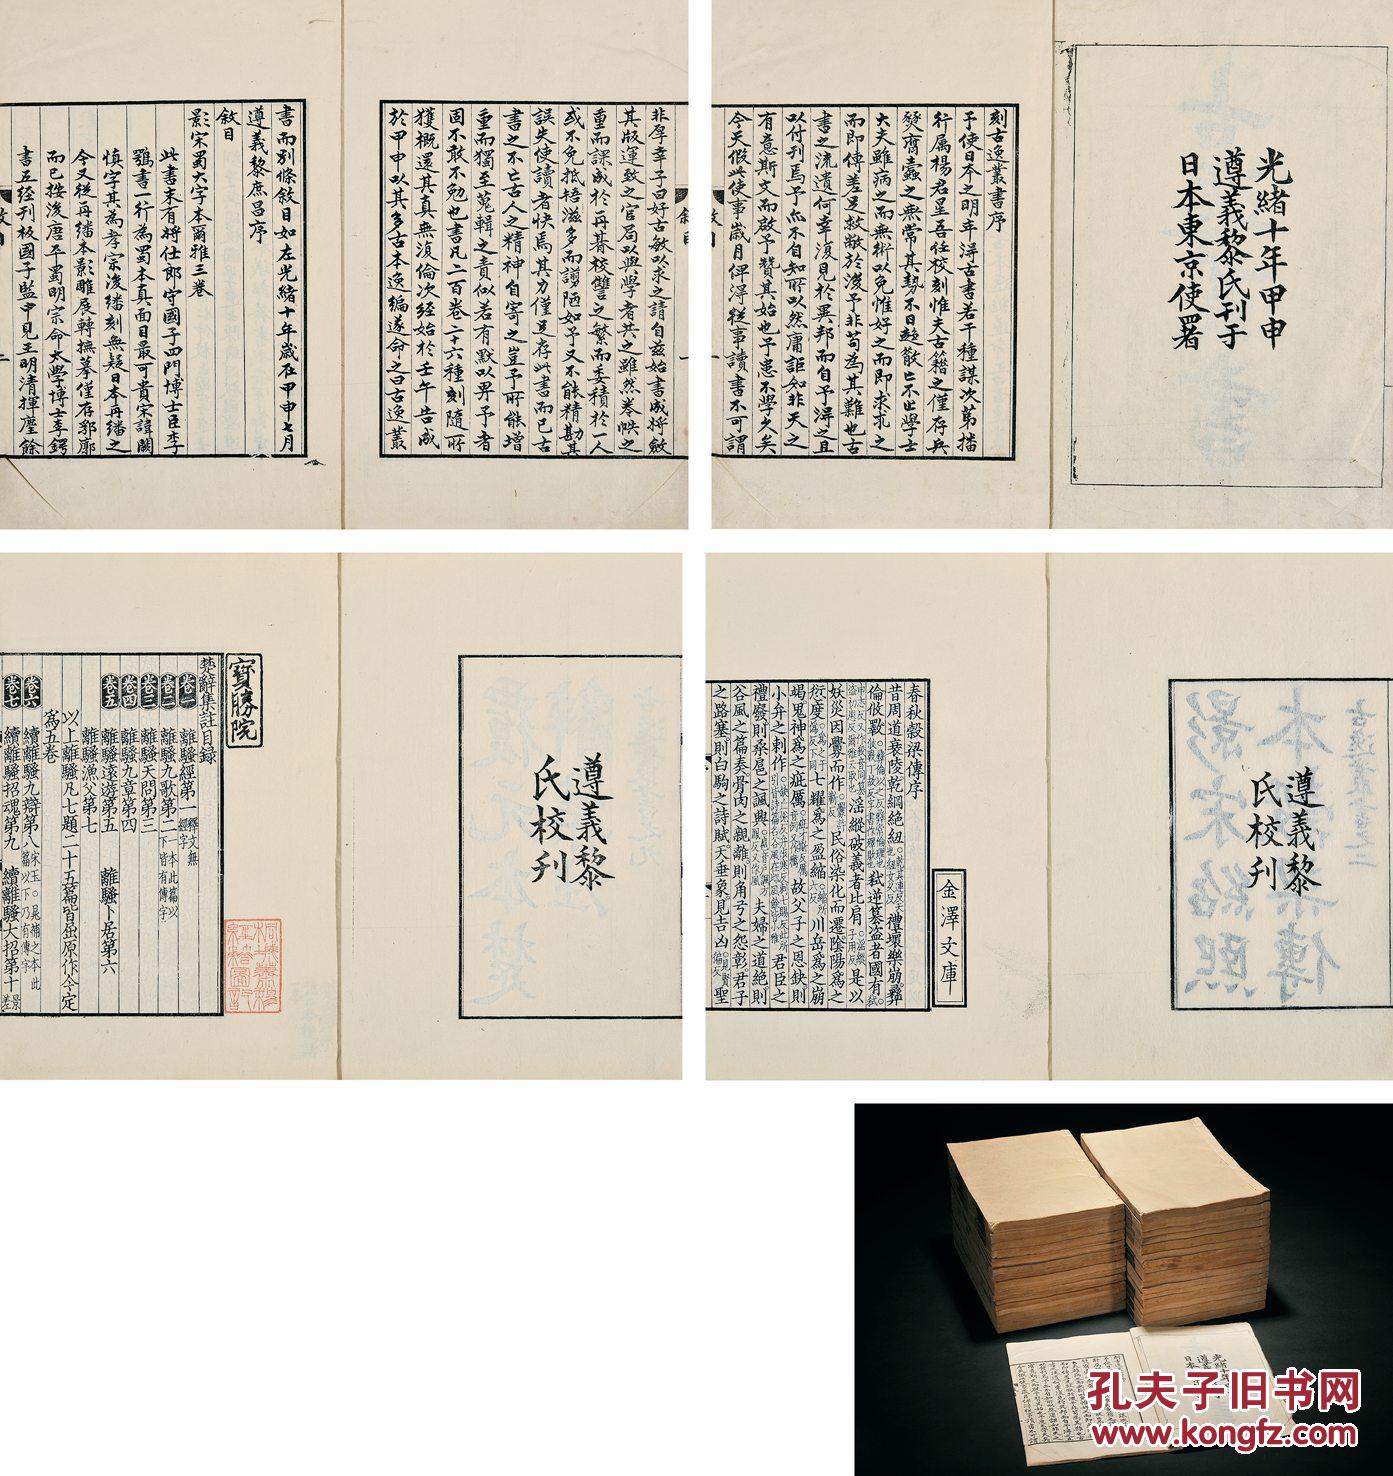 光緒十年甲申
遵義黎氏刊于
日本東京使署
刻古逸叢書序
予使日本之明年得古書若干種謀次第播
行屬楊君星吾任校刻惟夫古籍之僅存兵
燹齊蠹之無常其勢不日趨散亡不止學士
大夫雖病之而無術以免惟好之而即求求之
而即傳差足救敝於後予非苟為其難也古
書之流遺何幸復見於異邦而自予得之且
以付刊焉予亦不自知所以然庸詎知非天之
有意斯文而啟予贊其始也予患不學久矣
今天假此使事歲月俾得從事讀書不可謂
非厚幸子曰好古敏以求之請自茲始書成將斂
其版運致之官局以與學者共之雖然卷帙之
重而課成於再朞校讐之繁而委積於一人
或不免抵牾滋多而謭陋如予又不能精勘其
誤失使讀者快焉其力僅足存此書而已古
書之不亡古人之精神自寄之豈予所能增
重而獨至蒐輯之責似若有默以畀予者
固不敢不勉也書凡二百卷二十六種刻隨所
獲概還其真無復倫次經始於壬午告成
於甲申以其多古本逸編遂命之曰古逸叢
書而別條敘目如左光緒十年歲在甲申七月
遵義黎庶昌序
敘目
影宋蜀大字本爾雅三卷
此書末有將仕郎守國子四門博士臣李
鶚書一行為蜀本真面目最可貴宋諱闕
慎字其為孝宗後繙刻無疑日本再繙之
今又從再繙本影雕展轉撫摹僅存郛廓
而已按後唐平蜀明宗命太學博士李鍔
書五經刊板國子監中見王明清揮麈餘
敘目
一
二
遵義黎
氏校刊
金澤文庫
春秋穀梁傳序
昔周道衰陵乾綱絕紐
禮壞樂崩彝
倫攸斁
弒逆篡盜者國有
淫縱破義者比肩
是以
妖災因釁而作
民俗染化而遷陰陽為之
愆度
七耀為之盈縮
川岳為之崩
竭鬼神為之疵厲
故父子之恩缺則
小弁之刺作
君臣之
禮廢則桑扈之諷興
夫婦之道絕則
谷風之篇奏骨肉之親離則角弓之怨彰君子
之路塞則白駒之詩賦天垂象見吉凶
聖
遵義黎
氏校刊
寶勝院
楚辭集註目錄
卷一 離騷經第一 釋文無經字
卷二 離騷九歌第二 一本此篇以下皆有傳字
卷三 離騷天問第三
卷四 離騷九章第四
卷五 離騷遠遊第五 離騷卜居第六
離騷漁父第七
以上離騷凡七題二十五篇皆屈原作今定
為五卷
卷六 續離騷九辯第八 宋玉○晁補之本此篇以下乃有傳字
卷七 續離騷招魂第九 續離騷大招第十 景差
孔夫子旧书网
www.kongfz.com